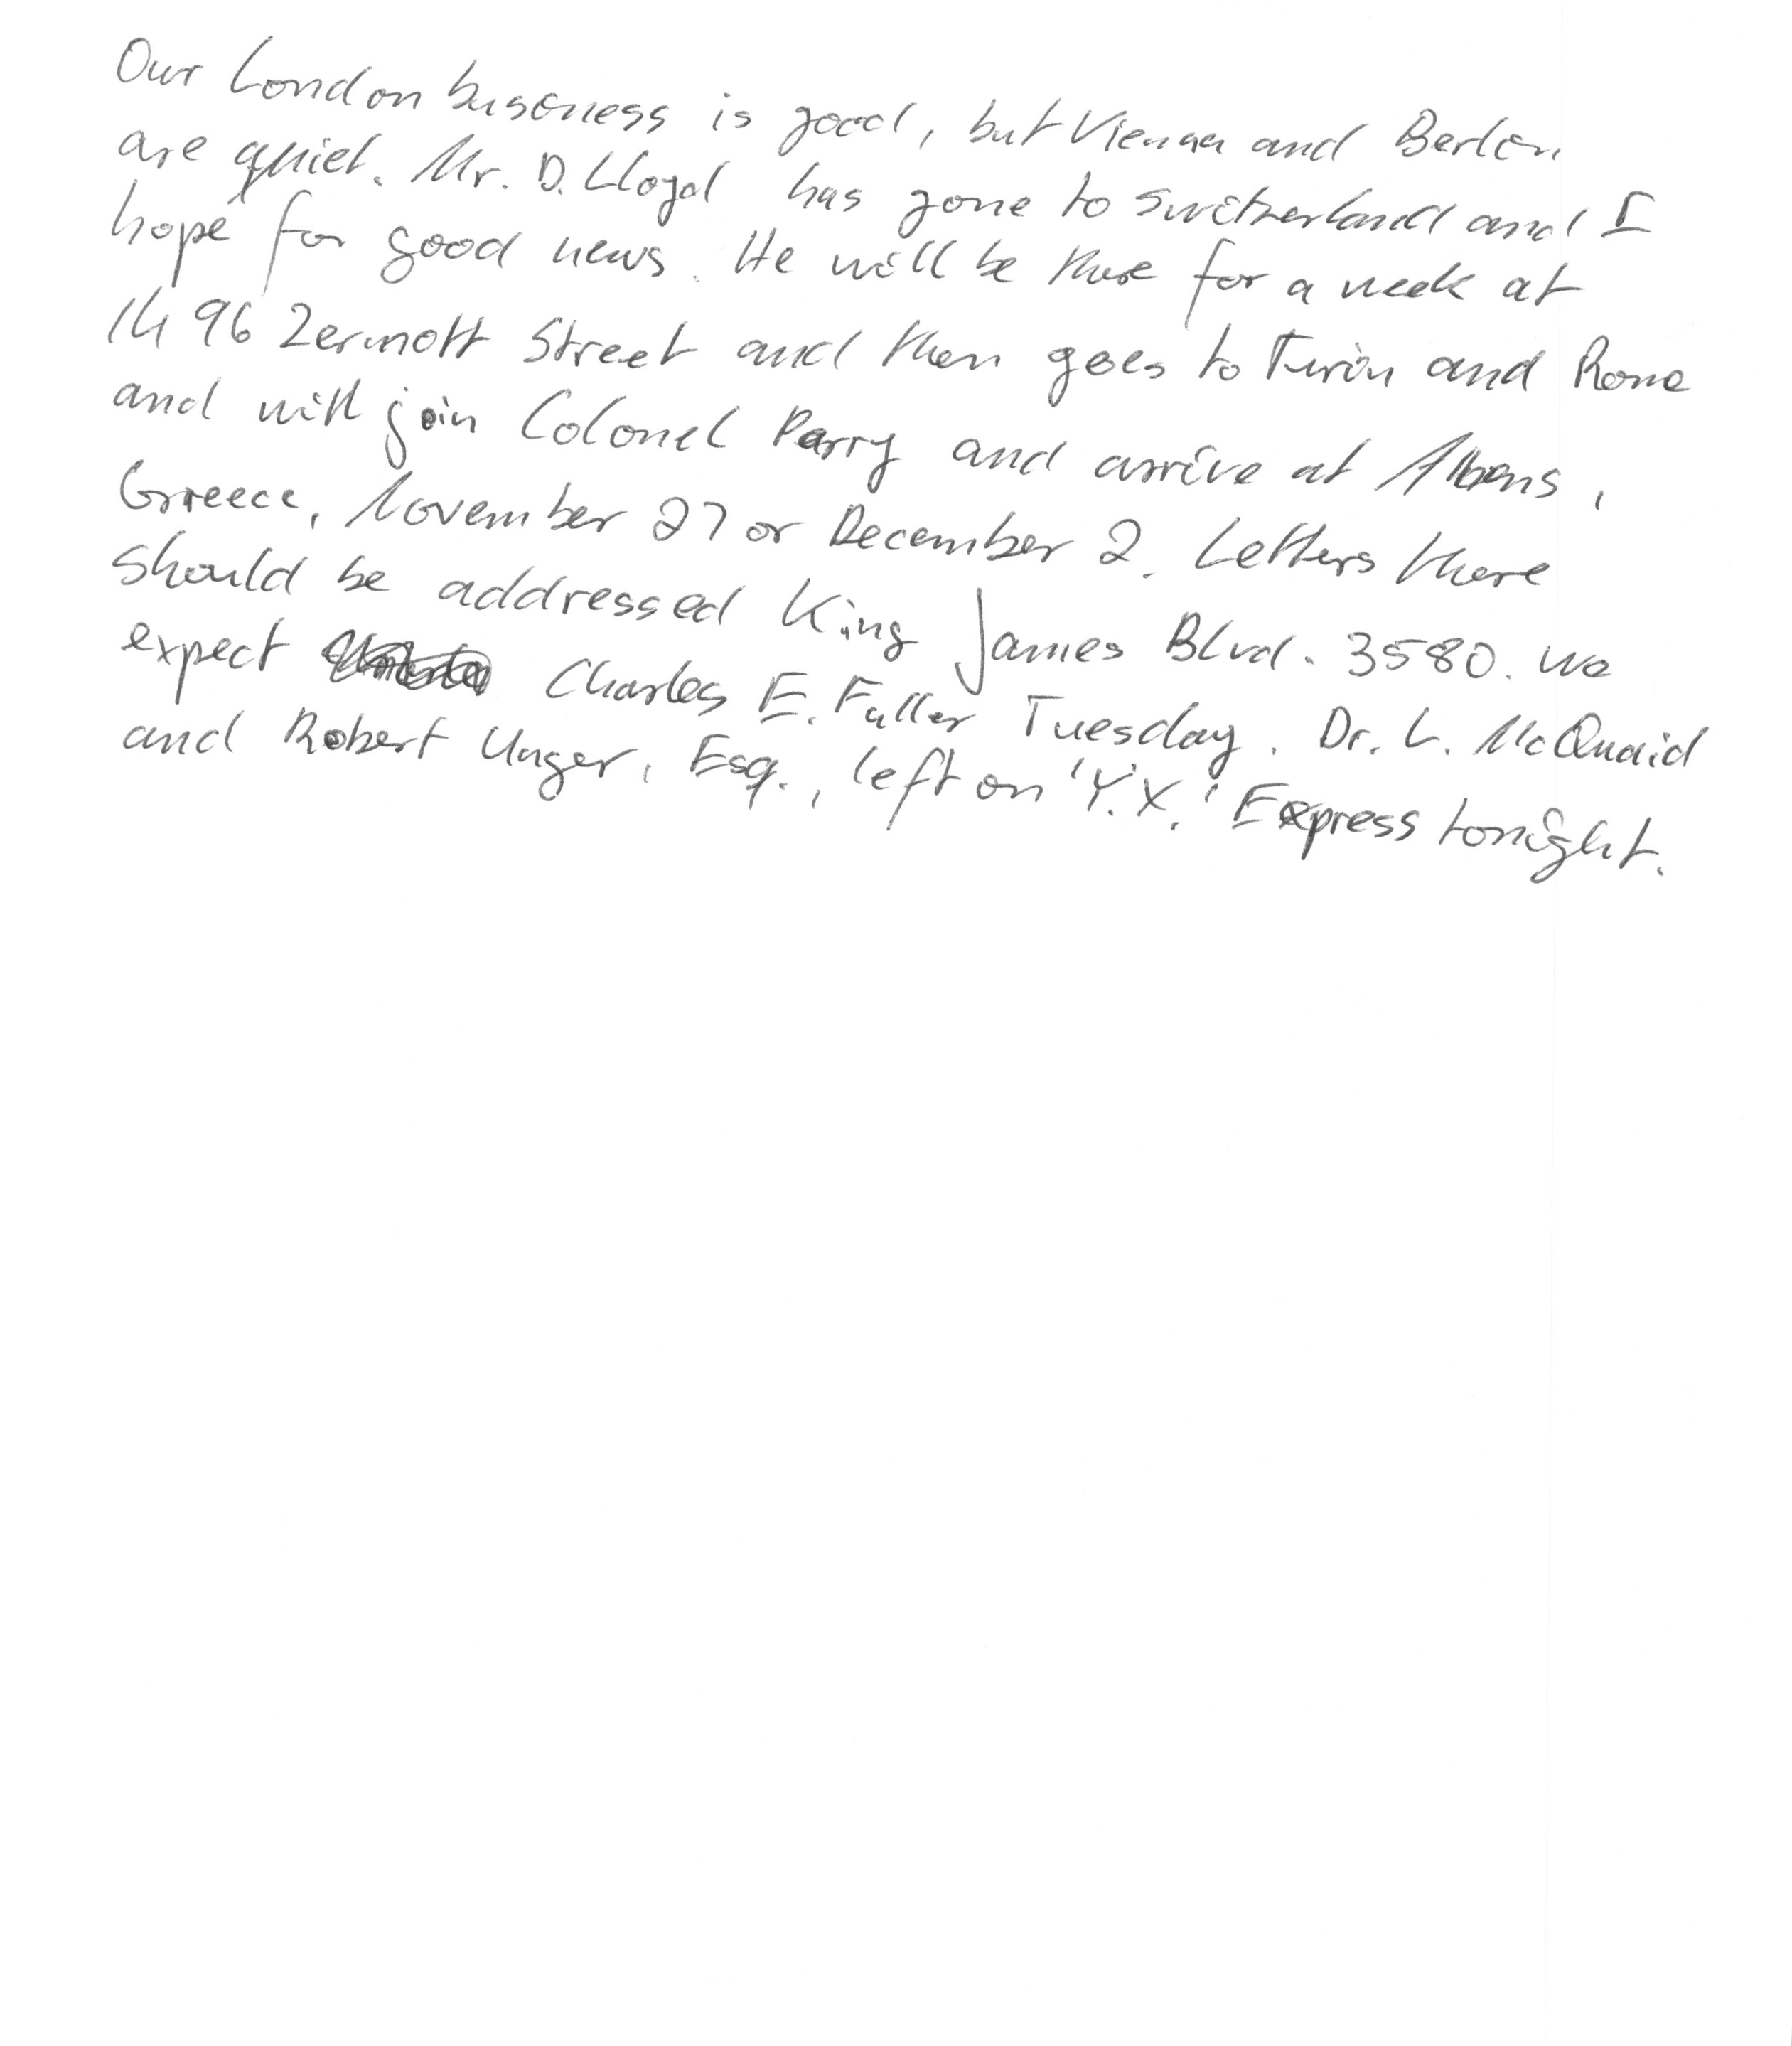 Our London business is good, but Vienna and Berlin
are quiet. Mr. D. Lloyd has gone to Switzerland and I
hope for good news. He will be there for a week at
1496 Zermott Street and then goes to Turin and Rome
and will join Colonel Parry and arrive at Athens,
Greece, November 27 or December 2. Letters there
should be addressed King James Blvd. 3580. We
expect Charles E. Fuller Tuesday. Dr. L. McQuaid
and Robert Unger, Esq., left on 'Y.X.' Express tonight.